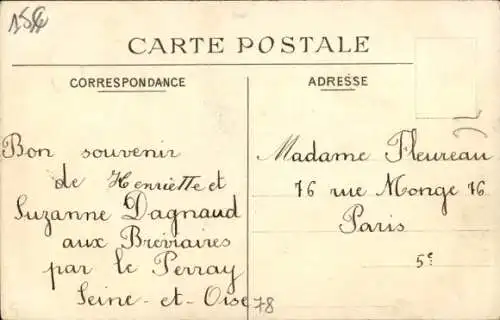 CARTE POSTALE
CORRESPONDANCE
ADRESSE
Bon souvenir
de Henriette et
Suzanne Dagnaud
aux Bréviaires
par le Perray
Seine-et-Oise
78
Madame Fleureau
76 rue Monge 76
Paris
5e